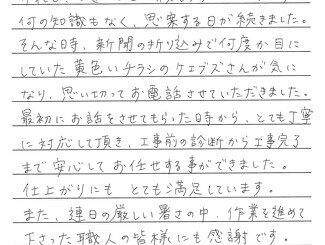 何の知識もなく、思案する日が続きました。
そんな日時、新聞の折り込みで何度か目に
していた黄色いチラシのケェブズさんが気に
なり、思い切ってお電話させていただきました。
最初にお話をさせてもらった日時から、とても丁寧
に対応して頂き、工事前の診断から工事完了
まで安心してお任せする事ができました。
仕上がりにも とても満足しています。
また、連日の厳しい暑さの中、作業を進めて
下さった職人の皆様にも感謝です。